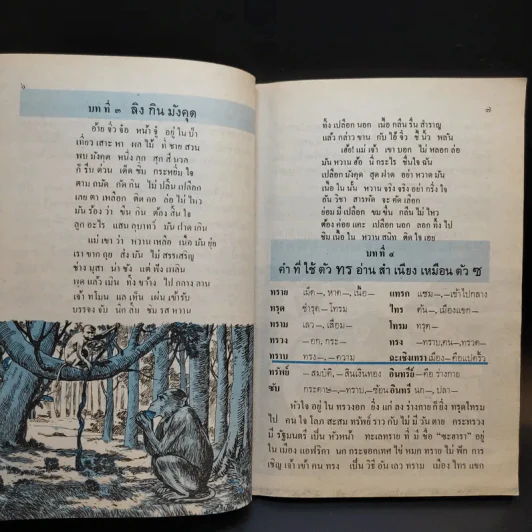 ๖
บท ที่ ๓ ลิง กิน มังคุด
อ้าย จิ๋ว จ๋อ หน้า จุ๋ อยู่ ใน ป่า
เที่ยว เสาะ หา ผล ไม้ ที่ ชาย สวน
พบ มังคุด หนึ่ง ลูก สุก สี นวล
ก็ รีบ ด่วน เด็ด ชิม กระหยิ่ม ใจ
ตาม ถนัด กัด กิน ไม่ ปลิ้น เปลือก
เลย ตา เหลือก ติด คอ ล่อ ไม่ ไหว
มัน ร้อง ว่า ขืน กิน ต้อง สิ้น ใจ
ลูก อะไร แสน อุบาทว์ มัน ฝาด เกิน
แม่ เขา ว่า หวาน เหลือ เนื้อ มัน ยุ่ย
เรา ขาก ถุย สั่ง มัน ไม่ สรรเสริญ
ช่าง มุสา น่า ชัง แต่ ฟัง เพลิน
พูด แล้ว เมิน ทิ้ง ขว้าง ไป กลาง ลาน
เจ้า ทโมน แล เห็น เผ่น เข้า รับ
บรรจง จับ นึก ลิ้ม ชิม รส หวาน
๗
ทิ้ง เปลือก นอก เนื้อ กลืน รื่น สำราญ
แล้ว กล่าว ขาน กับ ไอ้ จิ๋ว ชี้ นิ้ว พลัน
เฮ้ย! แม่ เจ้า เขา บอก ไม่ หลอก ล่อ
มัน หวาน ฮ้อ นี่ กระไร ชื่น ใจ ฉัน
เปลือก มังคุด สุด ฝาด อย่า หวาด มัน
เนื้อ ใน นั้น หวาน จริง จริง อย่า กริ่ง ใจ
อัน วิชา สารพัด จะ คัด เลือก
ย่อม มี เปลือก ขม ขื่น กลืน ไม่ ไหว
ต้อง ค่อย แคะ เปลือก นอก ลอก ทิ้ง ไป
ชิม เนื้อ ใน หวาน สนิท ติด ใจ เอย
บท ที่ ๔
คำ ที่ ใช้ ตัว ทร อ่าน สำ เนียง เหมือน ตัว ซ
ทราย เม็ด–, หาด–, เนื้อ– แทรก แซม–, –เข้าไปกลาง
ทรุด ชำรุด– โทรม ไทร ต้น–, เมืองแขก–
ทราม เลว–, เสื่อม– โทรม ทรุด–
ทรวง –อก, กระ– ทรง –ทราบ, คน–, ทรวด–
ทราบ ทรง–, –ความ ฉะเชิงเทรา เมือง–คือแปดริ้ว
ทรัพย์ –สมบัติ, –สินเงินทอง อินทรีย์ –คือ ร่างกาย
ซับ กระดาษ–, –ทราบ, –ซ้อน อินทรี นก–, ปลา–
หัวใจ อยู่ ใน ทรวงอก ยิ่ง แก่ ลง ร่างกาย ก็ยิ่ง ทรุดโทรม
ไป คน ใจ โลภ สะสม ทรัพย์ ราว กับ ไม่ มี วัน ตาย กระทรวง
มี รัฐมนตรี เป็น หัวหน้า ทะเลทราย ที่ มี ชื่อ "ซะฮารา" อยู่
ใน เมือง แอฟริกา นก กระจอกเทศ ไข่ หมก ทราย ไม่ ฟัก การ
เชิญ เจ้า เข้า คน ทรง เป็น วิธี อัน เลว ทราม เมือง ไทร แขก